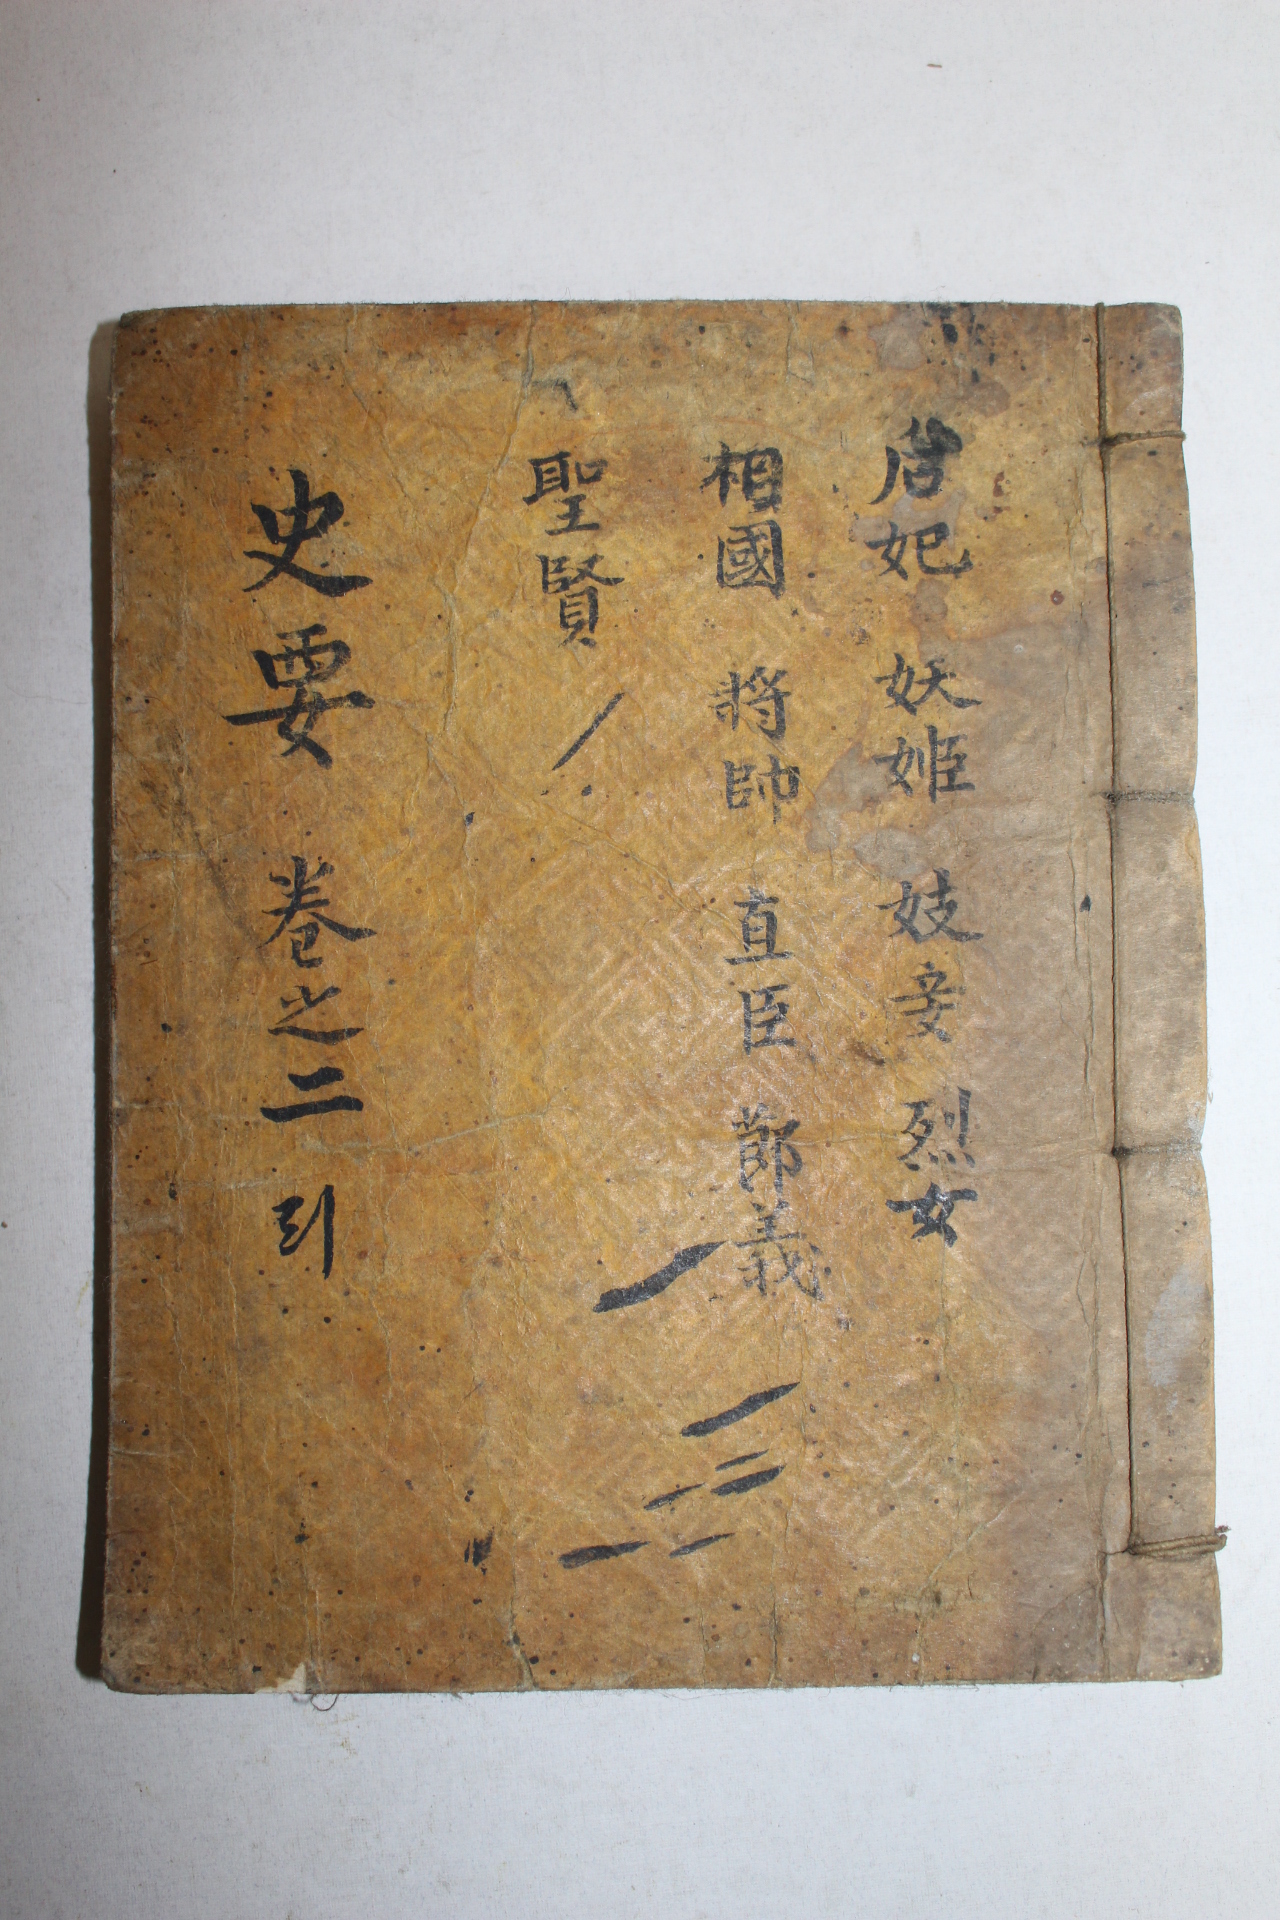 后妃 妖姬 妓妾 烈女
相國 將帥 直臣 莭義
聖賢
史要 卷之二 引